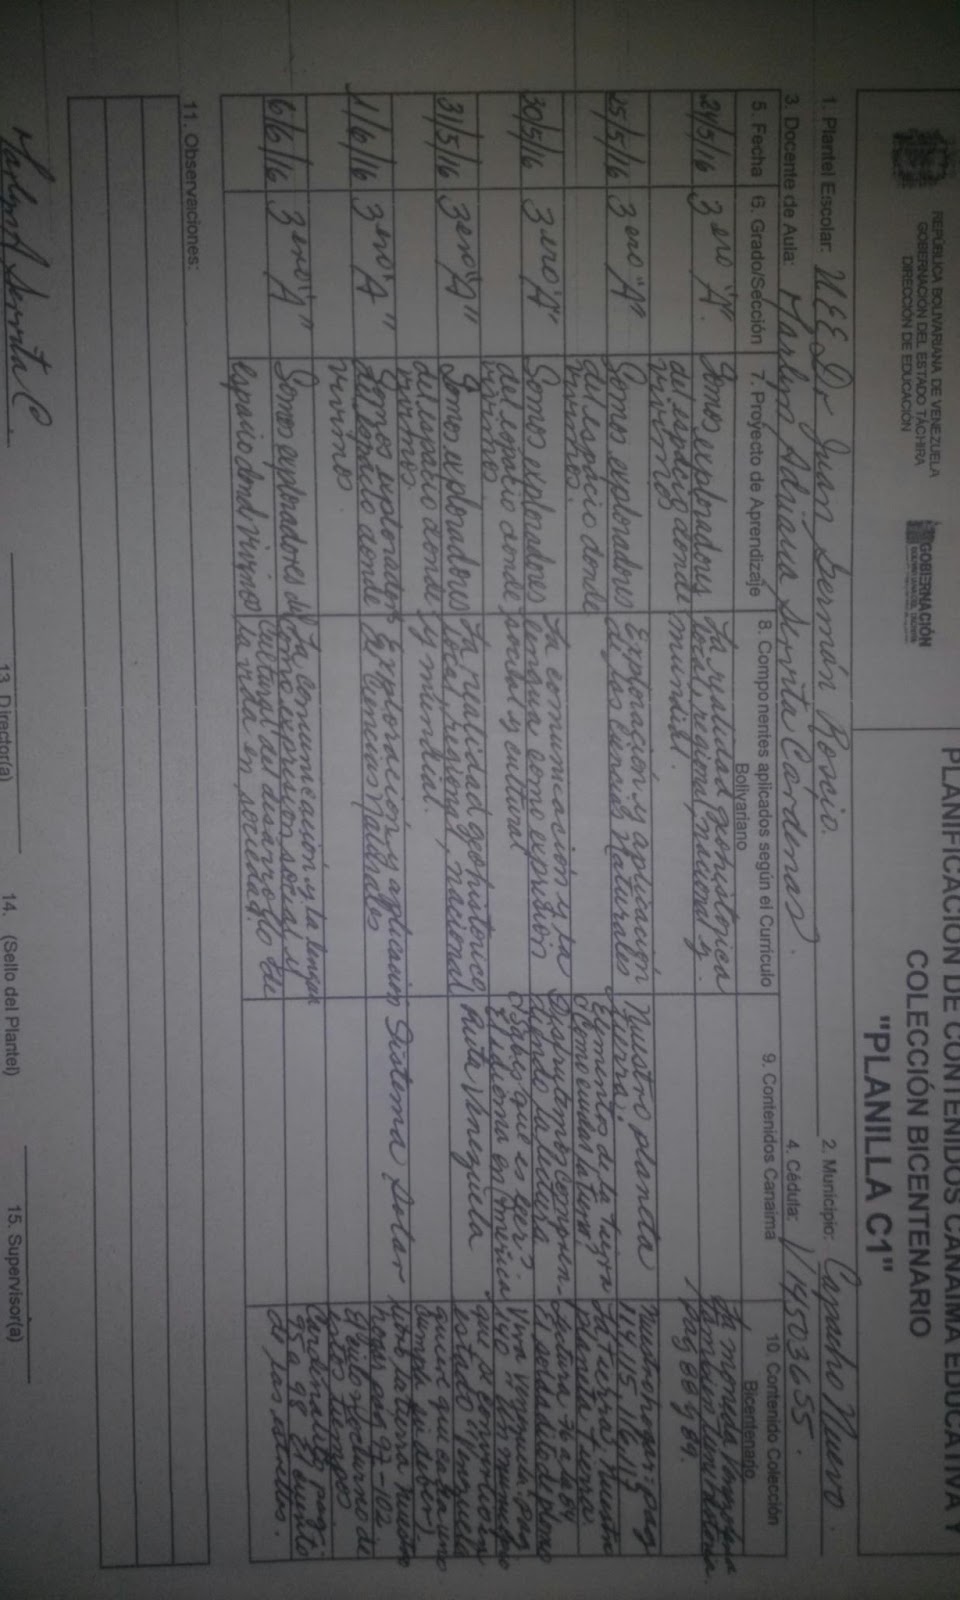 REPÚBLICA BOLIVARIANA DE VENEZUELA
GOBERNACION DEL ESTADO TÁCHIRA
DIRECCIÓN DE EDUCACIÓN
GOBERNACIÓN
PLANIFICACIÓN DE CONTENIDOS CANAIMA EDUCATIVA Y
COLECCIÓN BICENTENARIO
"PLANILLA C1"
1. Plantel Escolar: U E E Dr Juan Germán Roscio. 2. Municipio: Capacho Nuevo.
3. Docente de Aula: Marlyn Adriana Cárdenas. 4. Cédula: V 14503655.
5. Fecha 6. Grado/Sección 7. Proyecto de Aprendizaje 8. Componentes aplicados según el Currículo Bolivariano 9. Contenidos Canaima 10. Contenido Colección Bicentenario
24/5/16 3ero "A". Somos exploradores La realidad geohistórica La moneda
del espacio donde local, regional, nacional y también
vivimos mundial. pag 88 y 89.
25/5/16 3ero "A" Somos exploradores Exploración y aplicación Nuestro planeta Nuestro hogar: pag
del espacio donde de las ciencias Naturales tierra: 114, 115, 116, 117
vivimos. Elementos de la tierra La tierra: Nuestro
¿Como cuidar la tierra? planeta tierra
30/5/16 3ero "A" Somos exploradores La comunicación y la Disfrutemos compren- Lectura 76 a la 84
del espacio donde lengua como expresión diendo la lectura El soldadito de plomo
vivimos. social y cultural ¿Sabes que es leer?
El idioma en América
31/5/16 3ero "A" Somos exploradores La realidad geohistorica Ruta Venezuela Viva Venezuela. pag
del espacio donde local, regional, nacional 140 Un municipio
vivimos. y mundial. que se convirtió en
estado (Venezuela
quiere que cada uno
cumpla su deber)
1/6/16 3ero "A" Somos explorador Exploración y aplicación Sistema Solar Libro la tierra nuestro
del espacio donde de ciencias Naturales hogar pag 97-102
vivimos.
6/6/16 3ero "A" Somos exploradores del La comunicación y la lengua Cardinalito pag:
espacio dond vivimos como expresion social y 95 a 98 El cuento
cultural del desarrollo de de las estrellas.
la vida en sociedad.
11. Observaciones:
13. Director(a)
14. (Sello del Plantel)
15. Supervisor(a)